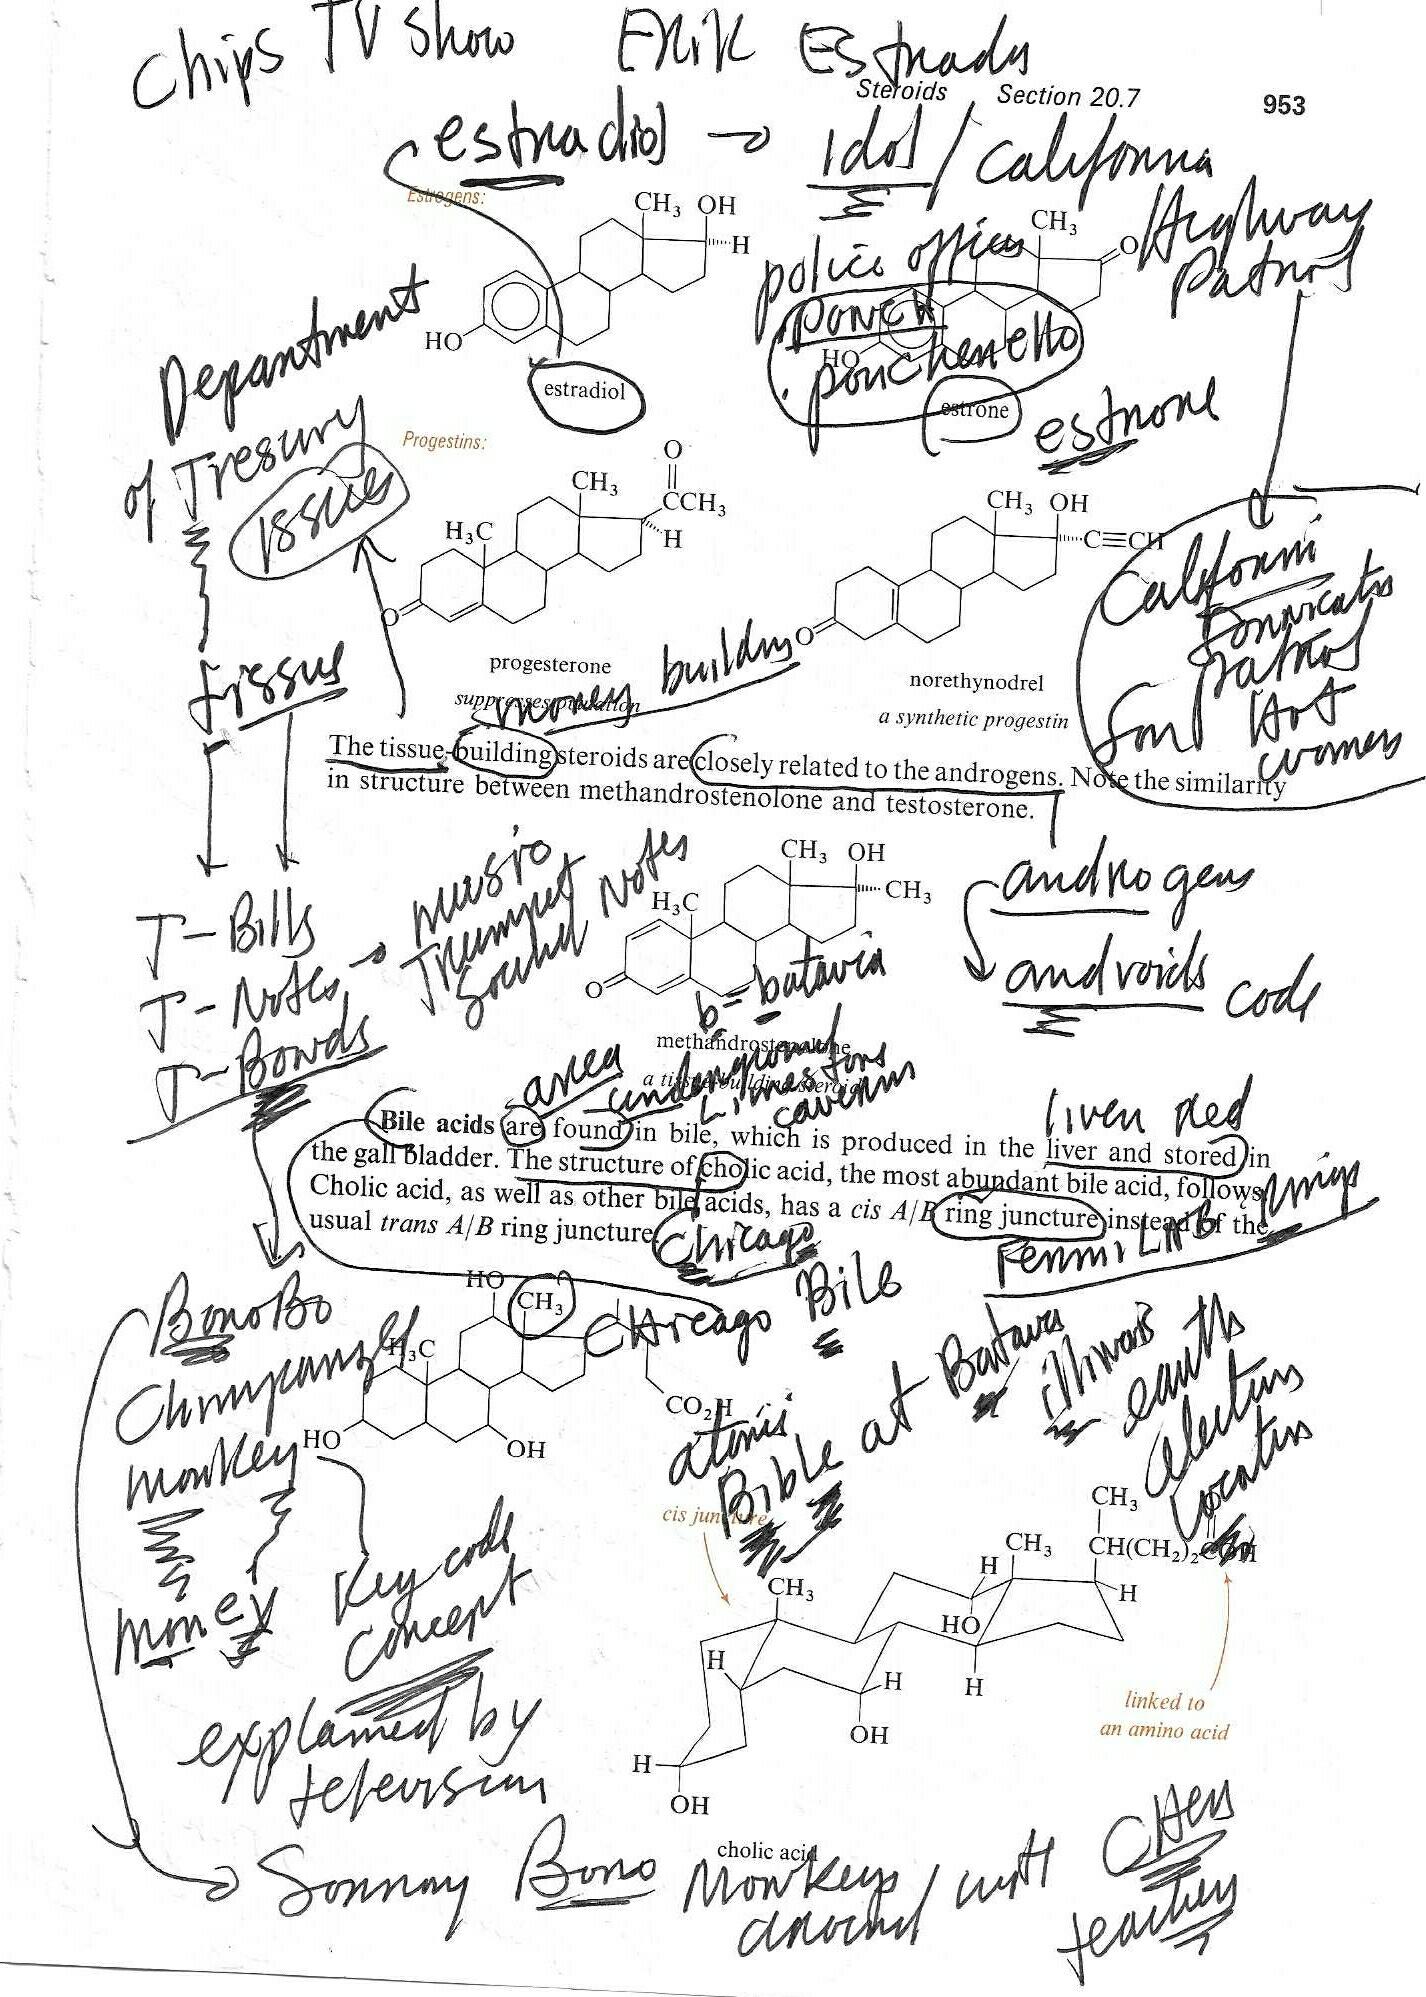 Chips TV Show Erik Estrada
Steroids Section 20.7 953
estradiol → idol / California
Highway
Patrol
Estrogens:
CH3 OH
H
HO
estradiol
police officer
Ponch
poncherello
CH3
O
HO
estrone
estrone
Department
of Tresury
issues
Tissue
Progestins:
O
CH3 CCH3
H3C H
O
progesterone
suppresses ovulation
money building
CH3 OH
C≡CH
O
norethynodrel
a synthetic progestin
Californi
Fornicator
Patrol
for Hot
women
The tissue-building steroids are closely related to the androgens. Note the similarity
in structure between methandrostenolone and testosterone.
T-Bills
T-Notes →
T-Bonds
music
Trumpet
Sound Notes
CH3 OH
CH3
H3C
O
androgens
androids code
b = batavia
methandrostenolone
a tissue-building steroid
area underground
Limestone
cavern
liver red
Bile acids are found in bile, which is produced in the liver and stored in
the gall bladder. The structure of cholic acid, the most abundant bile acid, follows.
Cholic acid, as well as other bile acids, has a cis A/B ring juncture instead of the
usual trans A/B ring juncture.
Chicago
Fermi LAB rings
HO
CH3
H3C
CO2H
HO OH
Chicago Bile
atomic
Bible at Batavia
illinois
earth
electrons
BonoBo
Chimpanzee
monkey
money
Key code
concept
explained by
television
cis juncture
CH3
CH3 CH(CH2)2COH
O
H
H
CH3
HO
H
H
H
OH
H
OH
linked to
an amino acid
cholic acid
Sonnny Bono Monkeys
around / with CHer
teaching